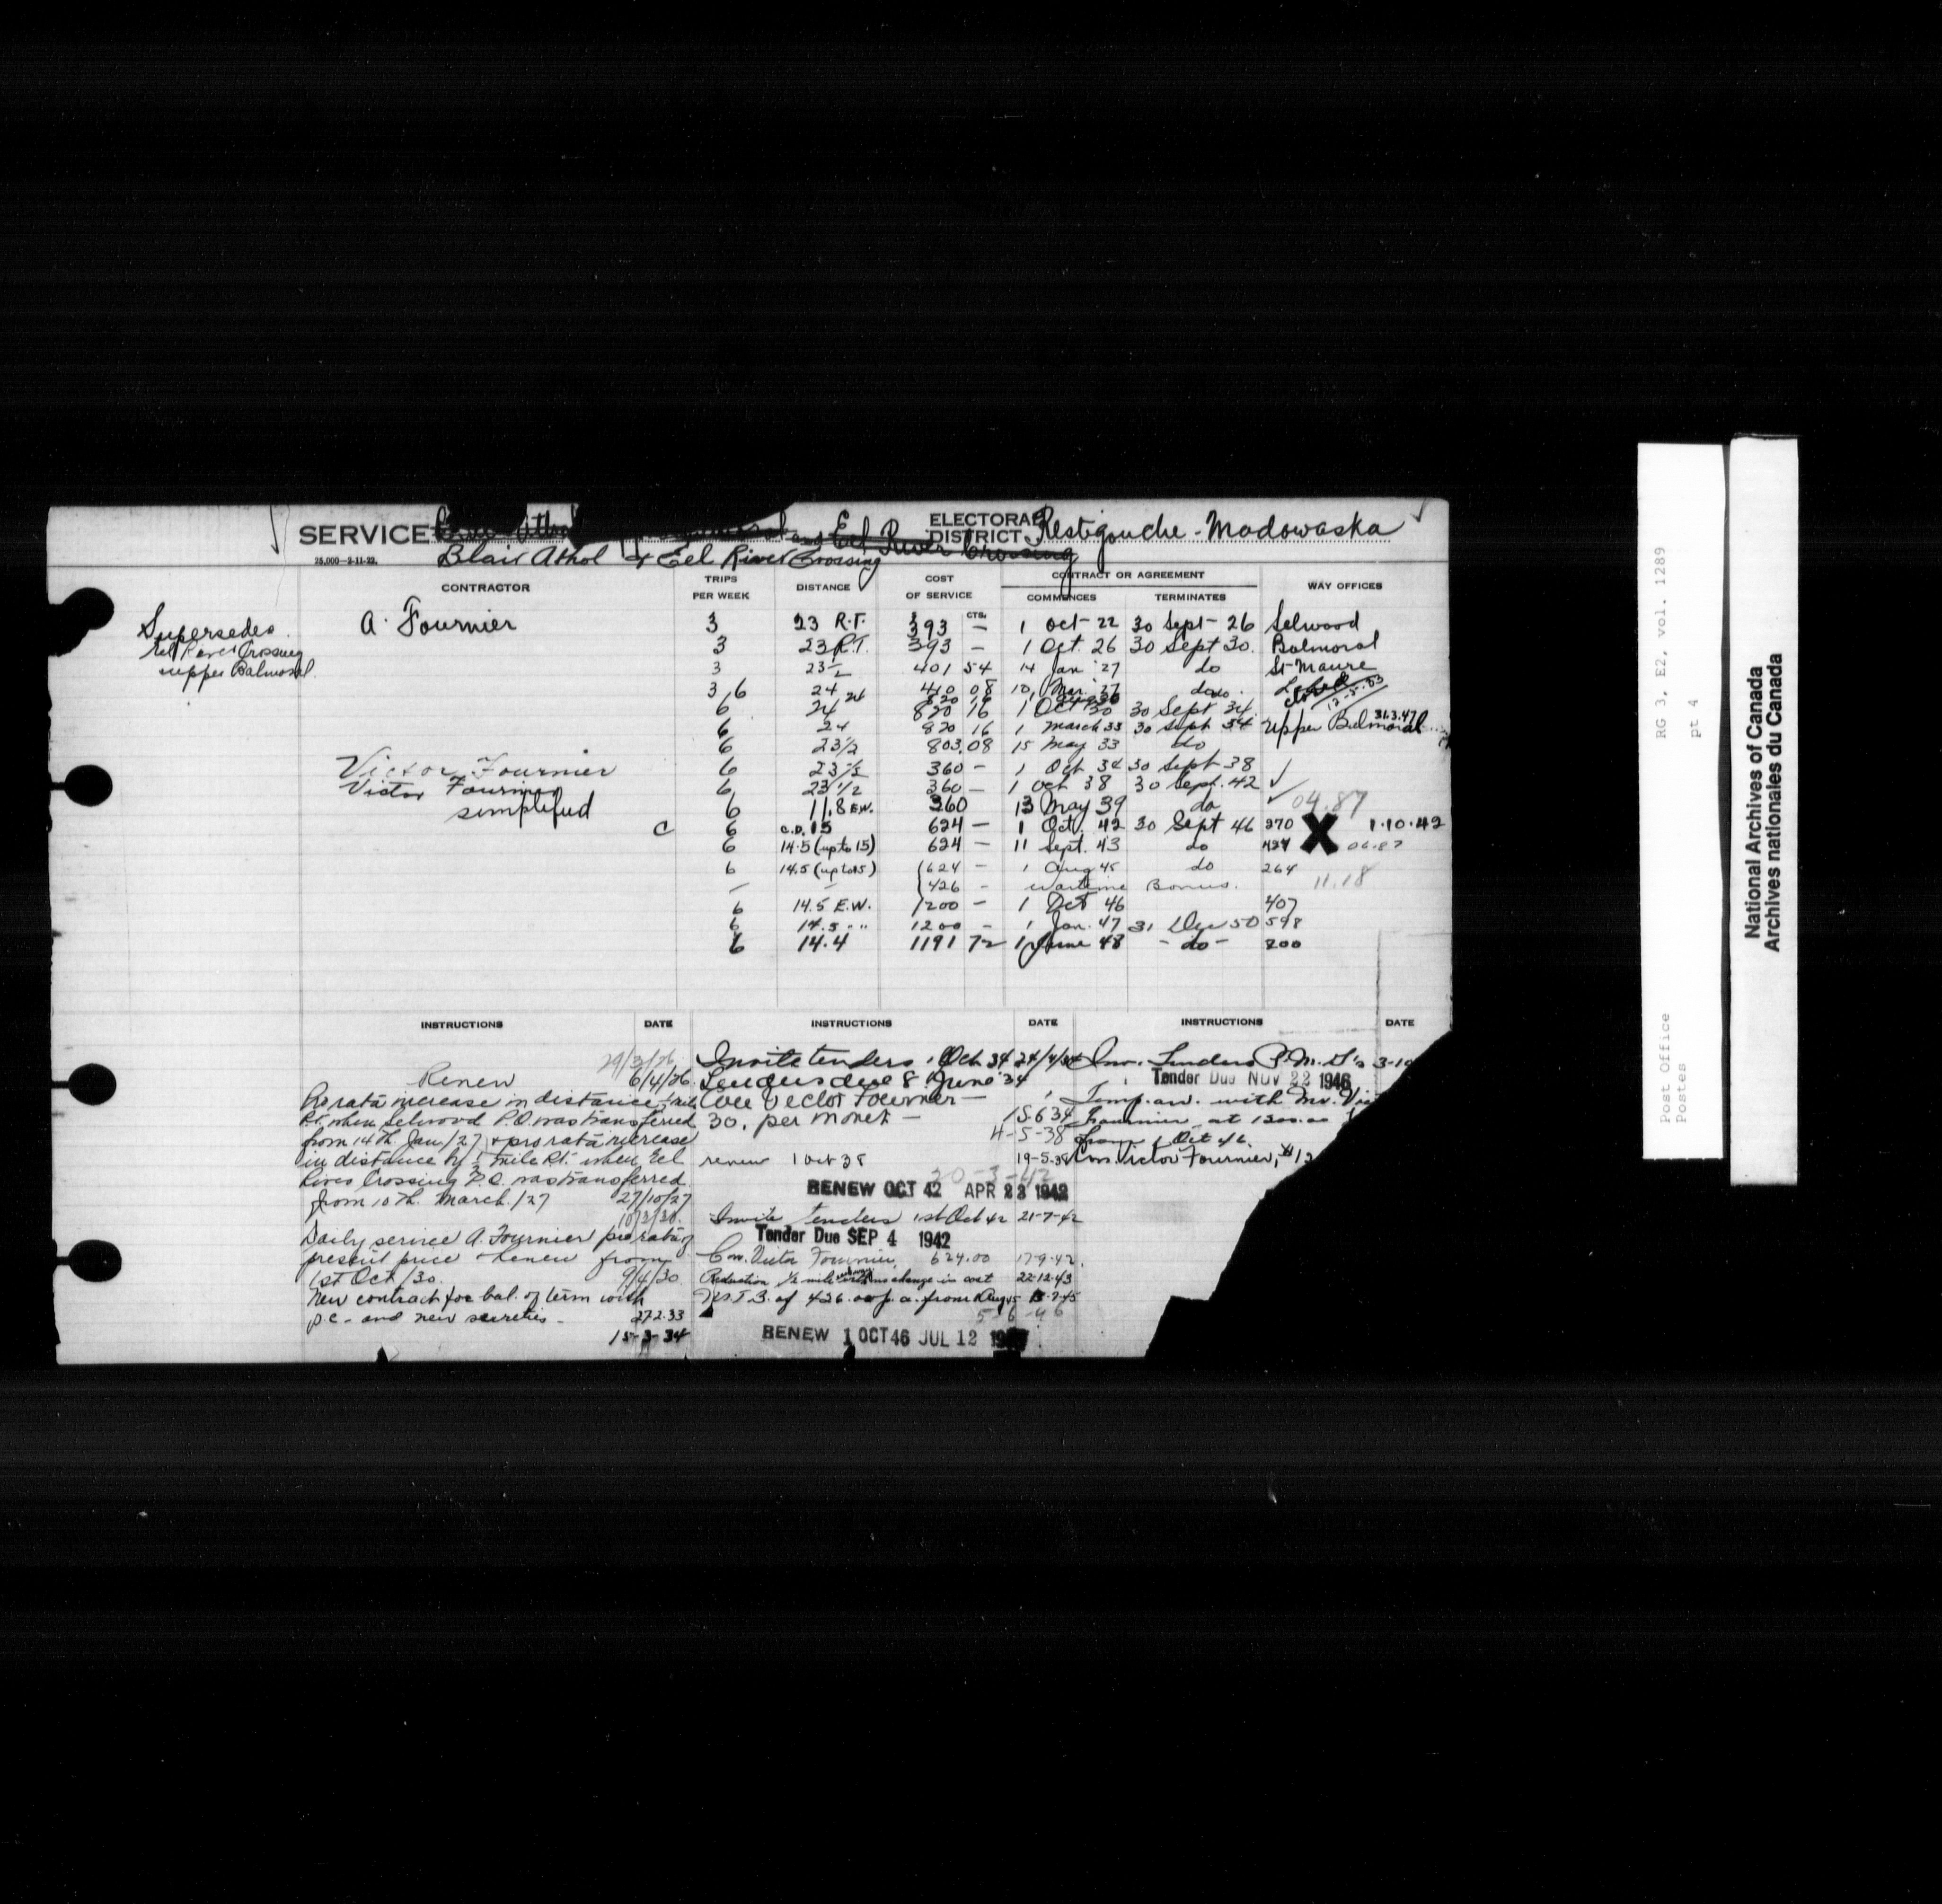 SERVICE and Eel River Crossing
Blair Athol & Eel River Crossing
ELECTORAL DISTRICT Restigouche - Madawaska
25,000-2-11-22.
CONTRACTOR TRIPS PER WEEK DISTANCE COST OF SERVICE CTS. CONTRACT OR AGREEMENT COMMENCES TERMINATES WAY OFFICES
Supersedes
Eel River Crossing
Upper Balmoral
A. Fournier 3 23 R.T. 393 — 1 Oct- 22 30 Sept- 26 Selwood
3 23 R.T. 393 — 1 Oct. 26 30 Sept 30. Balmoral
3 23½ 401 54 14 Jan '27 do St Maure
3, 6 24 410 08 10 Mar. '27 do closed 12-5-33
6 24 820 16 1 Oct 30 30 Sept 34
6 24 820 16 1 March 33 30 Sept 34 Upper Balmoral 31.3.47
6 23½ 803.08 15 May 33 do
Victor Fournier 6 23½ 360 — 1 Oct 34 30 Sept 38
Victor Fournier 6 23 1/2 360 — 1 Oct 38 30 Sept. 42 ✓
simplified 6 11.8 E.W. 360 13 May 39 do ✓ 04.87
C 6 C.D. 15 624 — 1 Oct. 42 30 Sept 46 270 X 1.10.42
6 14.5 (up to 15) 624 — 11 Sept. 43 do 06.87
6 14.5 (up to 15) 624 — 1 Aug 45 do 264
— — 426 — Wartime Bonus. 11.18
6 14.5 E.W. 1200 — 1 Oct 46 407
6 14.5 " " 1200 — 1 Jan. 47 31 Dec 50 598
6 14.4 1191 72 1 June 48 - do - 200
INSTRUCTIONS DATE INSTRUCTIONS DATE INSTRUCTIONS DATE
29/3/26
Renew 6/4/26
Pro rata increase in distance ½ mile
R.T. when Selwood P.O. was transferred
from 14th. Jan/27 & pro rata increase
in distance by ½ mile R.T. when Eel
River Crossing P.O. was transferred
from 10th. March/27 27/10/27
10/3/30.
Daily service A. Fournier pro rata of
present price & renew from
1st Oct/30. 9/4/30
New contract for bal. of term with
p.c. and new sureties - 27.2.33
15-3-34
Invite tenders 1 Oct 34 24/4/34
Tenders due 8 June '34
Con Victor Fournier —
30. per month — 15.6.34
4-5-38
renew 1 Oct 38 19-5-38
20-3-42
RENEW OCT 42 APR 23 1942
Invite tenders 1st Oct 42 21-7-42
Tender Due SEP 4 1942
Con. Victor Fournier, 624.00 17-9-42
Reduction ½ mile no change in cost 22-12-43
W.T.B. of 426.00 p.a. from 1 Aug 45
5-6-46
RENEW 1 OCT 46 JUL 12
Inv. Tenders P.M. G's 3-10
Tender Due NOV 22 1946
Temp. arr. with Mr.
Fournier at 1200.00
from 1 Oct 46.
Con. Victor Fournier, $12
RG 3, E2, vol. 1289
pt 4
Post Office
Postes
National Archives of Canada
Archives nationales du Canada